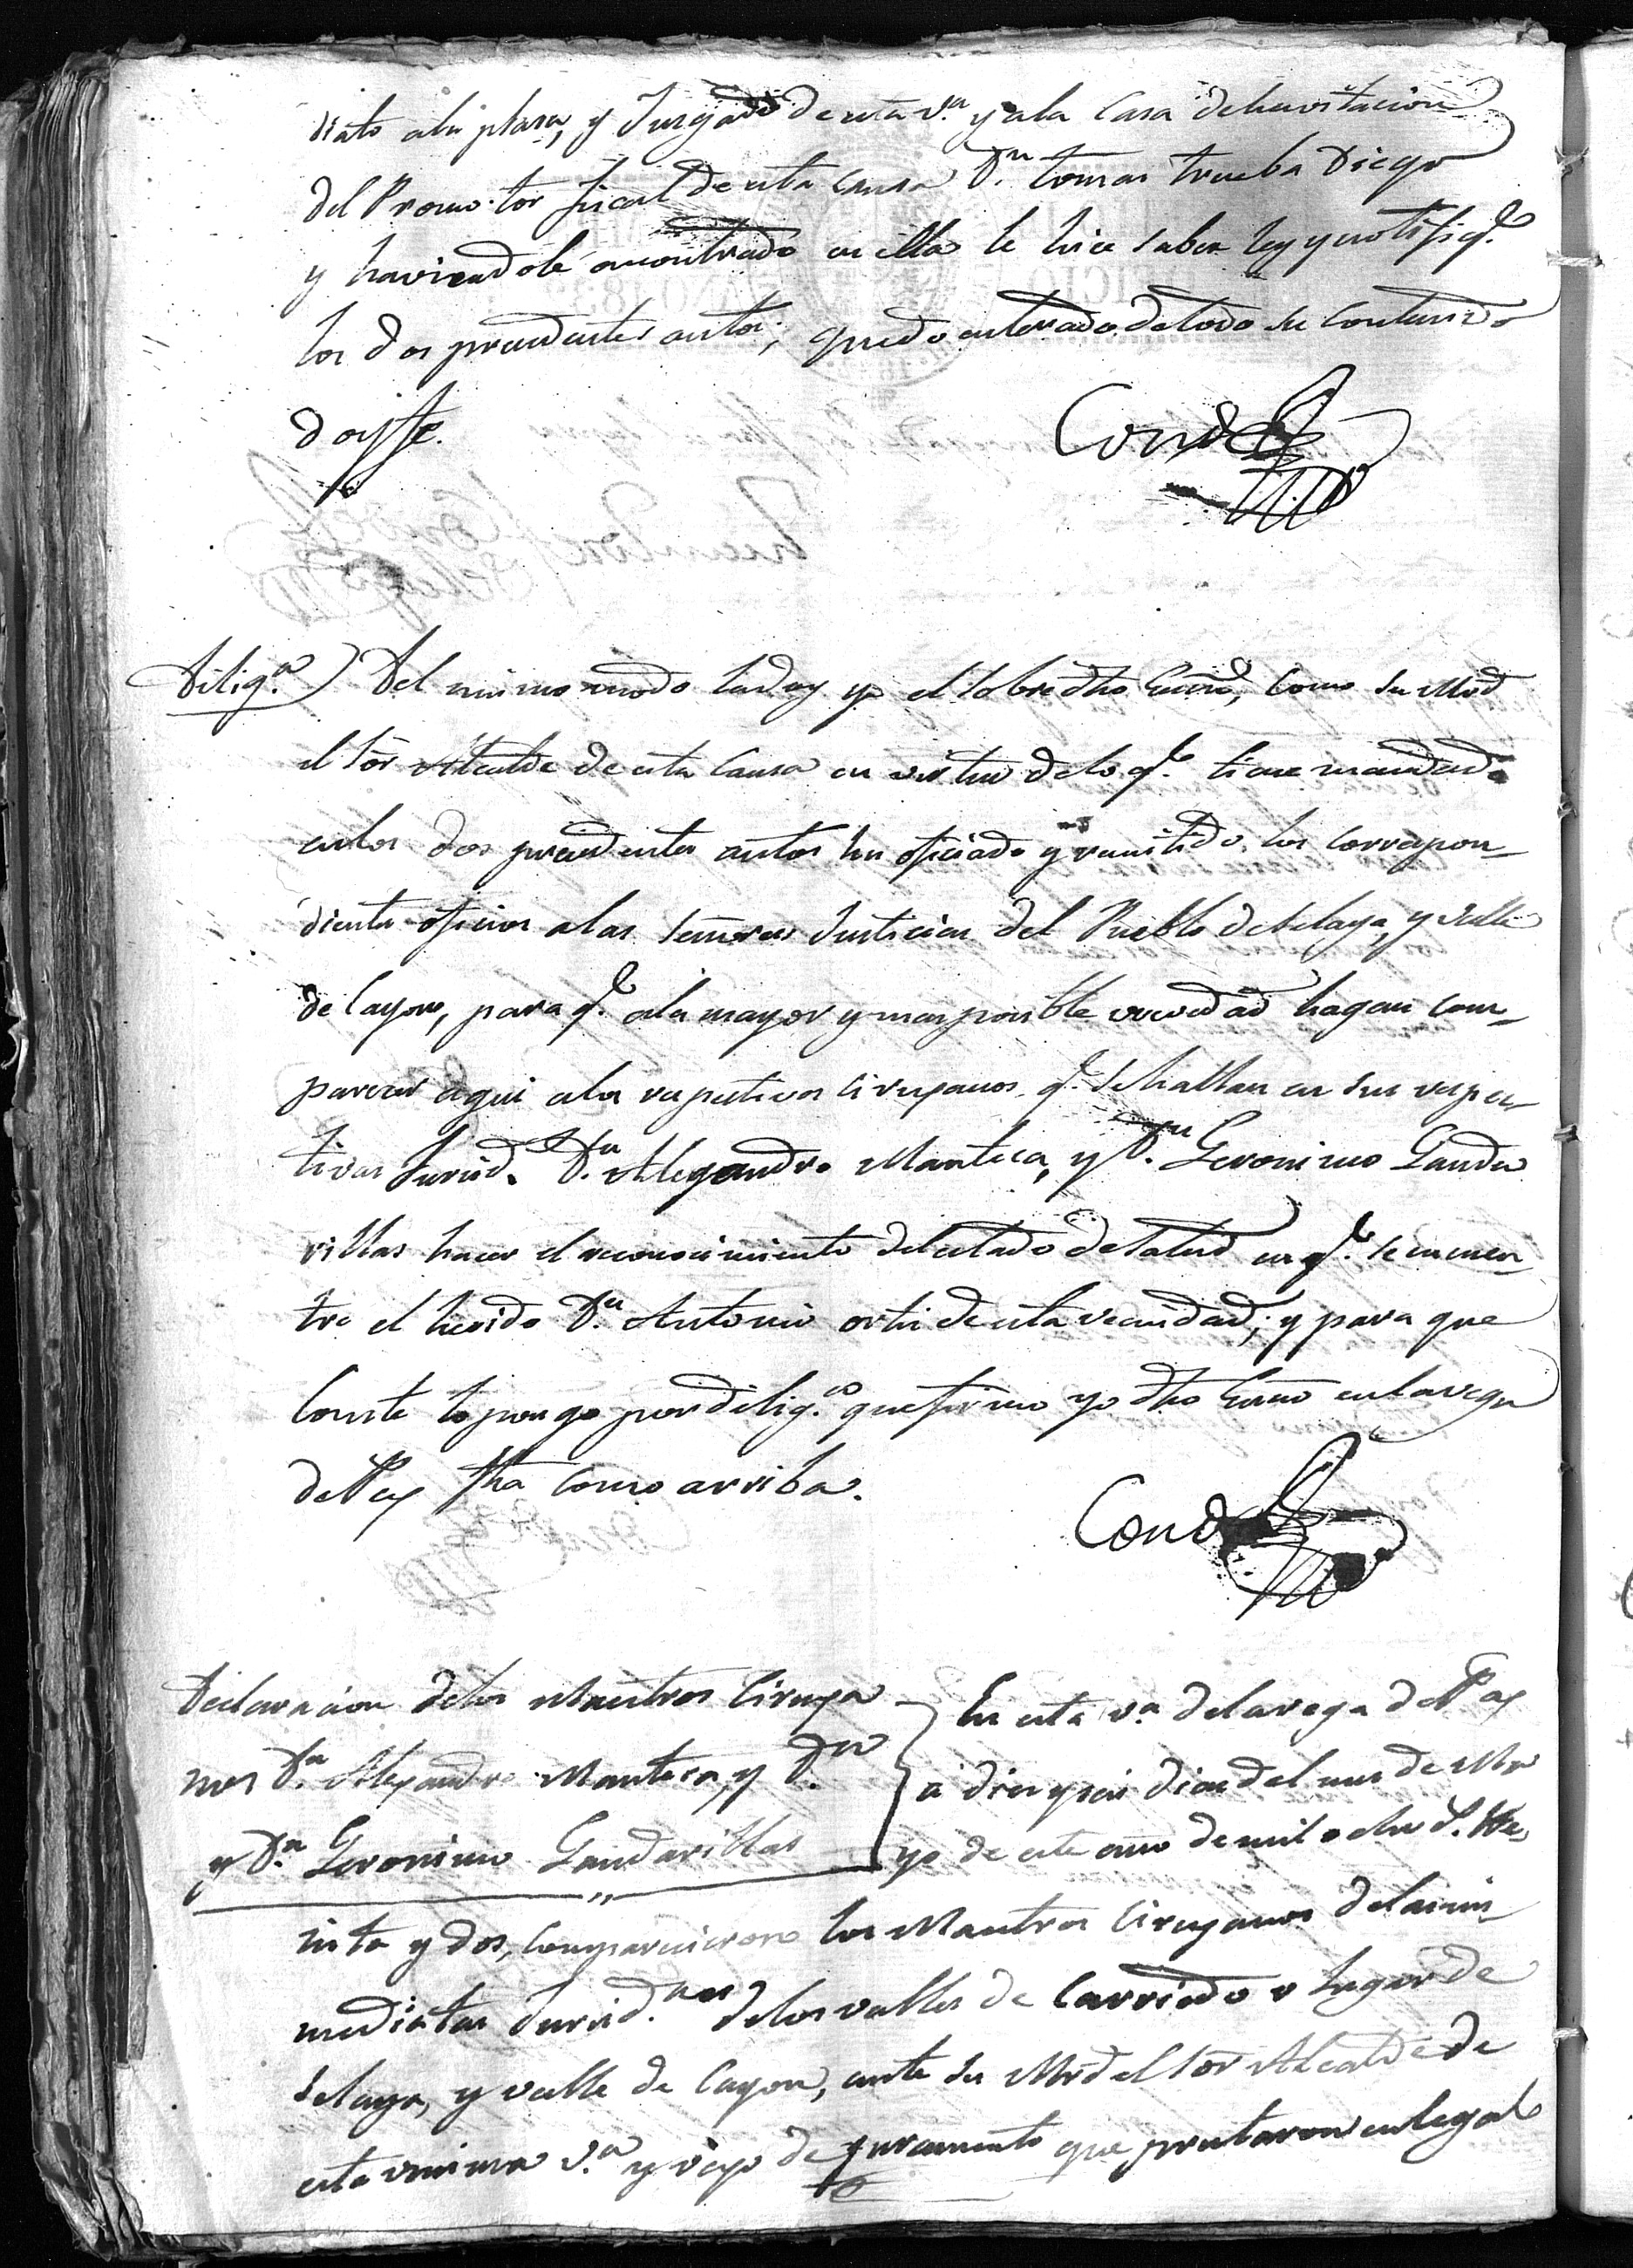 diato ala plasa, y Jusgado de esta v.a y ala Casa de havitacion
del Promotor fiscal de esta causa D.n tomas trueba Diego
y haviendole encontrado en ella le hice saber ley y notifiq.e
los dos precedentes autos; quedo enterado de todo su contenido
doy fe.
Conde
Dilig.a) Del mismo modo la doy yo el sobredho Escrno, como su Mrd
el sor Alcalde de esta Causa en virtud de lo q.e tiene mandado
en los dos precedentes autos ha oficiado y remitido los correspon-
dientes oficios alas señoras Justicias del Pueblo de Selaya, y valle
de Cayon, para q.e ala mayor y mas posible brevedad hagan com-
parecer aqui alos respectivos cirujanos q.e se hallan en sus respec-
tivas Jurisd.s D.n Alejandro Manteca, y D.n Geronimo Ganda
rillas hacer el reconocimiento del estado de salud en q.e se encuen-
tra el herido D.n Antonio ortiz de esta vecindad; y para que
Conste lo pongo por dilig.a que firmo yo dho Escrno en la vega
de Pas fha como arriba.
Conde
Declaracion delos Maestros Ciruja
nos D.n Alejandro Manteca, y D.n
y D.n Geronimo Gandarillas
En esta v.a dela vega de Pas
á dies y seis dias del mes de Ma
yo de este año de mil ocho s. tre
inta y dos, comparecieron los Maestros Cirujanos delas in-
mediatas Jurisd.nes delos valles de Carriedo o lugar de
Selaya, y valle de Cayon, ante su Mrd el sor Alcalde de
esta misma v.a y vajo de juramento que prestaron en legal